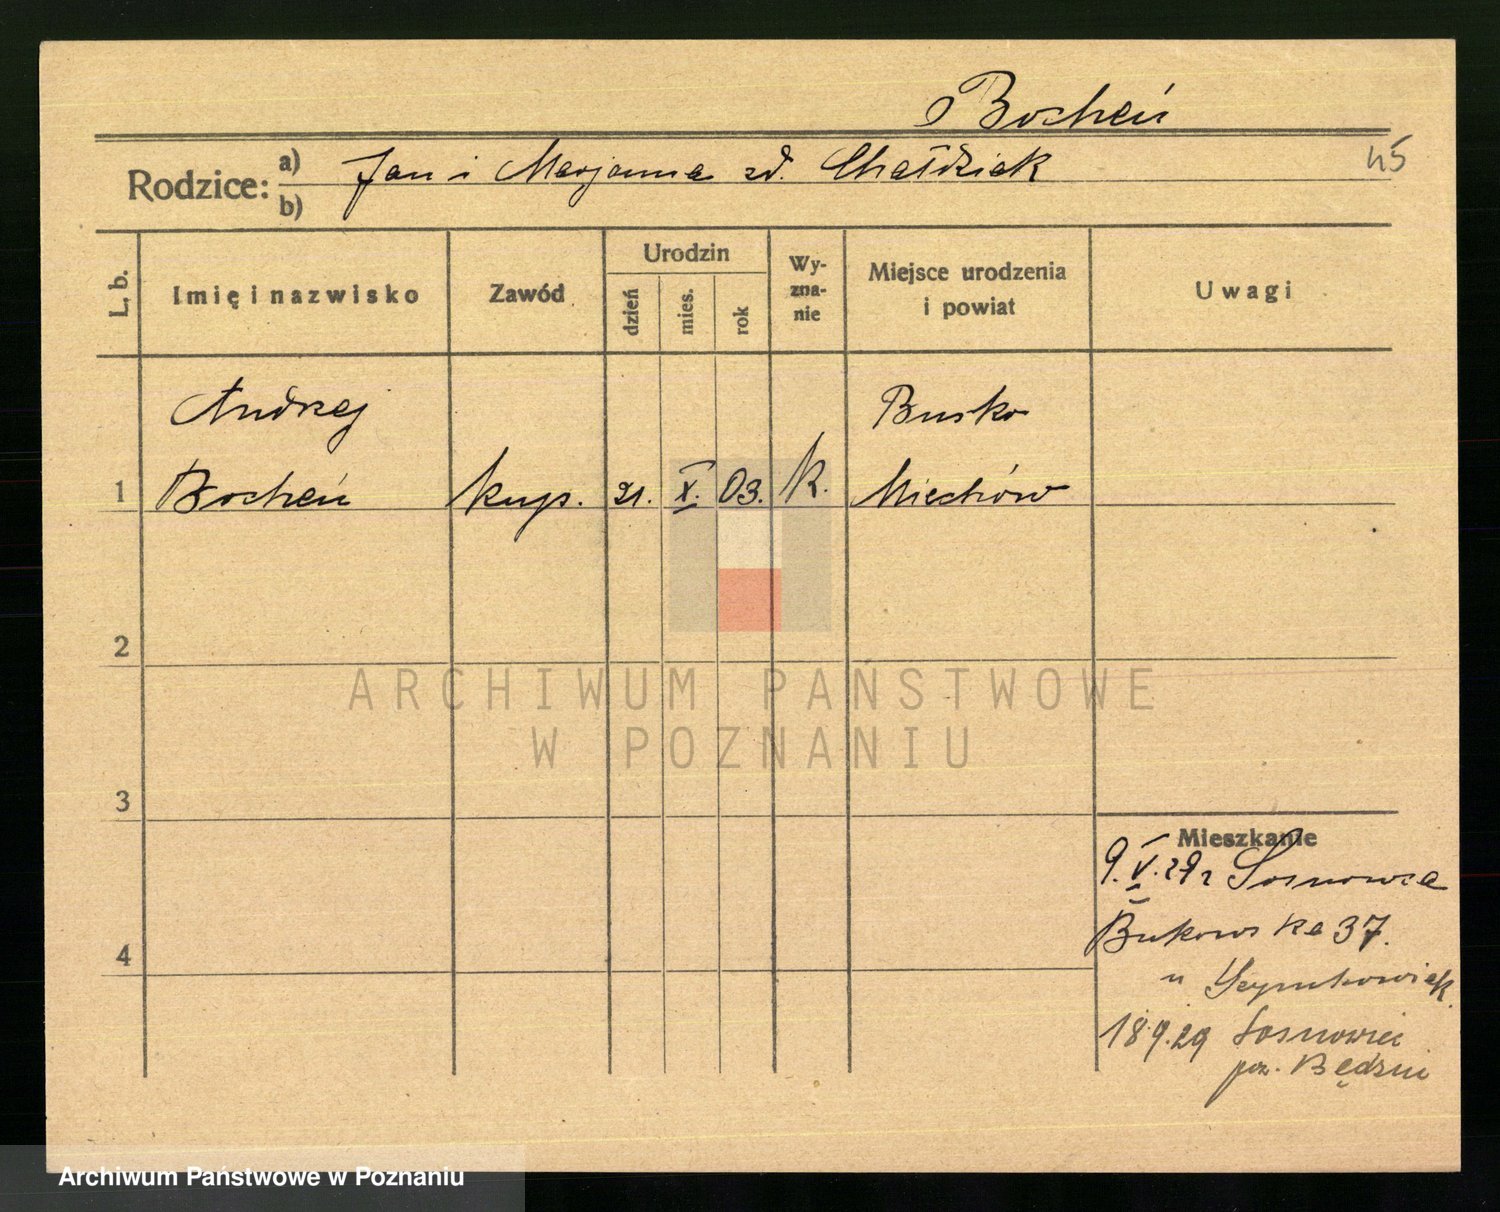 Bocheń
Rodzice: a) Jan i Marjanna zd. Chałdziak
b)
45
L. b.
Imię i nazwisko
Zawód
Urodzin
dzień
mies.
rok
Wy-
zna-
nie
Miejsce urodzenia
i powiat
Uwagi
Andrzej
Busko
1 Bocheń kup. 21. X. 03. k. Miechów
2
ARCHIWUM PAŃSTWOWE
W POZNANIU
3
Mieszkanie
9.V.29 z Sosnowca
Bukowska 37.
u
4
18.9.29 Sosnowiec
pow. Będzin
Archiwum Państwowe w Poznaniu